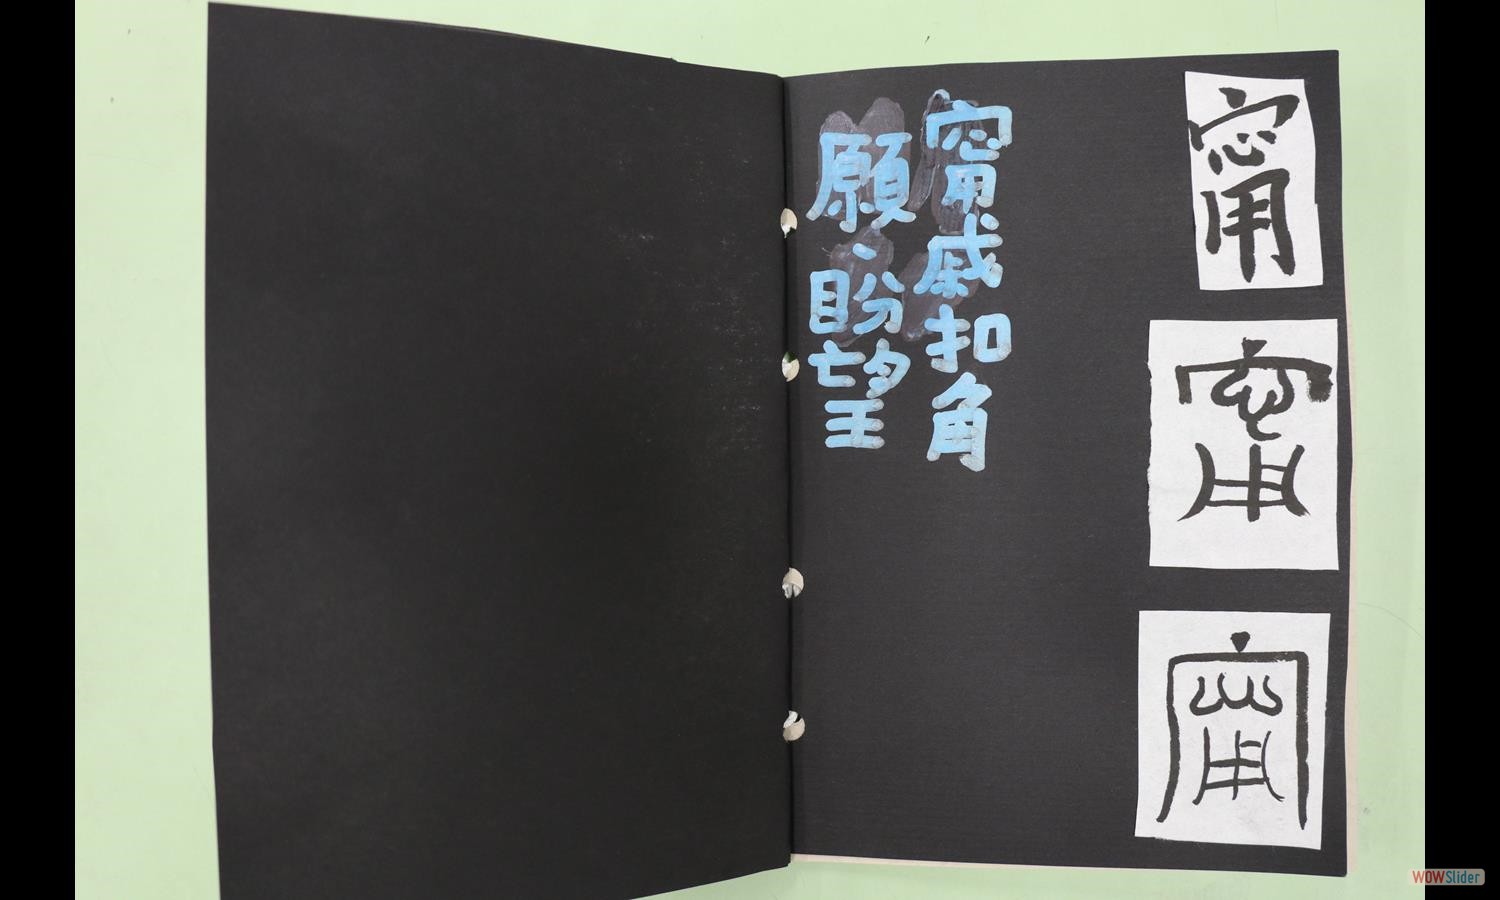 甯
甯
甯
甯戚扣角
願、盼望
WOWSlider